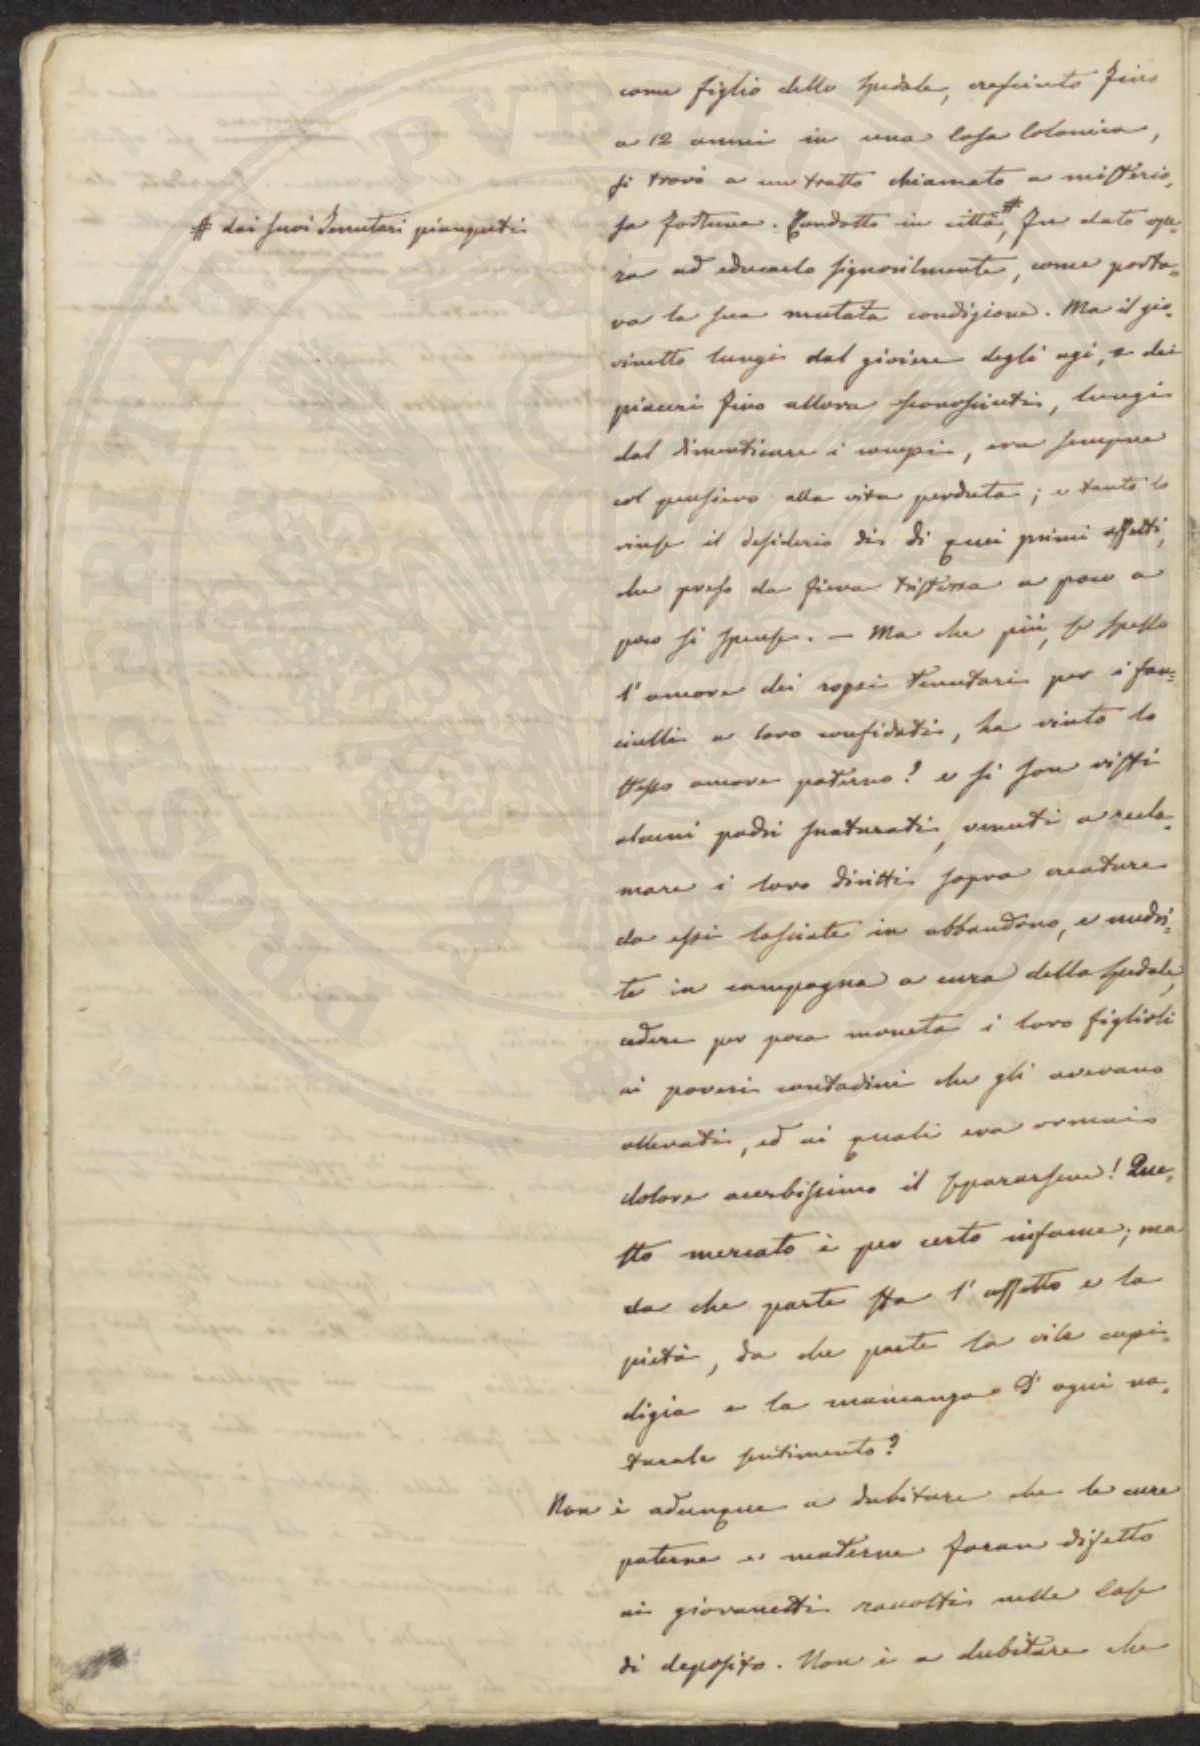 come figlio dello Spedale, cresciuto fino
a 12 anni in una Casa Colonica,
si trovò a un tratto chiamato a misterio,
sa fortuna. Condotto in città #, fu dato ope,
# dai suoi Tenutari piangenti
ra ad educarlo signorilmente, come porta,
va la sua mutata condizione. Ma il gio,
vinetto lungi dal gioire degli agi, e dei
piaceri fino allora sconosciuti, lungi
dal dimenticare i campi, era sempre
col pensiero alla vita perduta; e tanto lo
vinse il desiderio di di quei primi affetti,
che preso da fiera tristezza a poco a
poco si spense. — Ma che più, se spesso
l'amore dei rozzi tenutari per i fan,
ciulli a loro confidati, ha vinto lo
stesso amore paterno? e si son visti
alcuni padri snaturati, venuti a recla,
mare i loro diritti sopra creature
da essi lasciate in abbandono, e nudri,
te in campagna a cura dello Spedale,
cedere per poca moneta i loro figlioli
ai poveri contadini che gli avevano
allevati, ed ai quali era ormai
dolore acerbissimo il separarsene! Que,
sto mercato è per certo infame; ma
da che parte sta l'affetto e la
pietà, da che parte la vile cupi,
digia e la mancanza d'ogni na,
turale sentimento?
Non è adunque a dubitare che le cure
paterne e materne faran difetto
ai giovanetti raccolti nelle Case
di deposito. Non è a dubitare che
POSSESSI PVBLIC